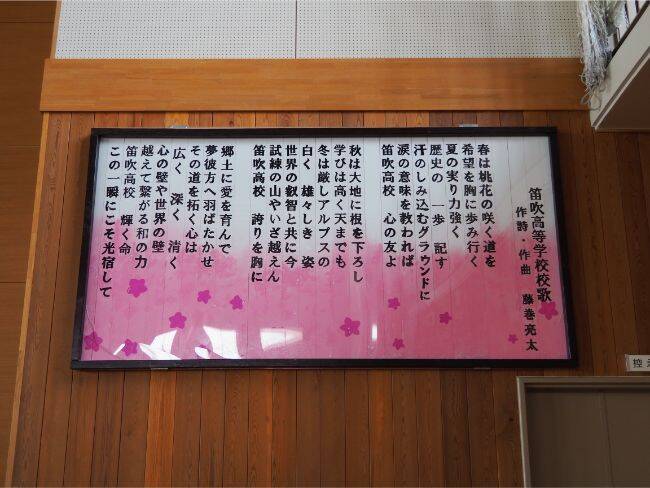 笛吹高等学校校歌
作詩・作曲 藤巻亮太
春は桃花の咲く道を
希望を胸に歩み行く
夏の実り力強く
歴史の 一歩 記す
汗のしみ込むグラウンドに
涙の意味を教われば
笛吹高校 心の友よ
秋は大地に根を下ろし
学びは高く天までも
冬は厳しアルプスの
白く 雄々しき 姿
世界の叡智と共に今
試練の山やいざ越えん
笛吹高校 誇りを胸に
郷土に愛を育んで
夢彼方へ羽ばたかせ
その道を拓く心は
広く 深く 清く
心の壁や世界の壁
越えて繋がる和の力
笛吹高校 輝く命
この一瞬にこそ光宿して
控